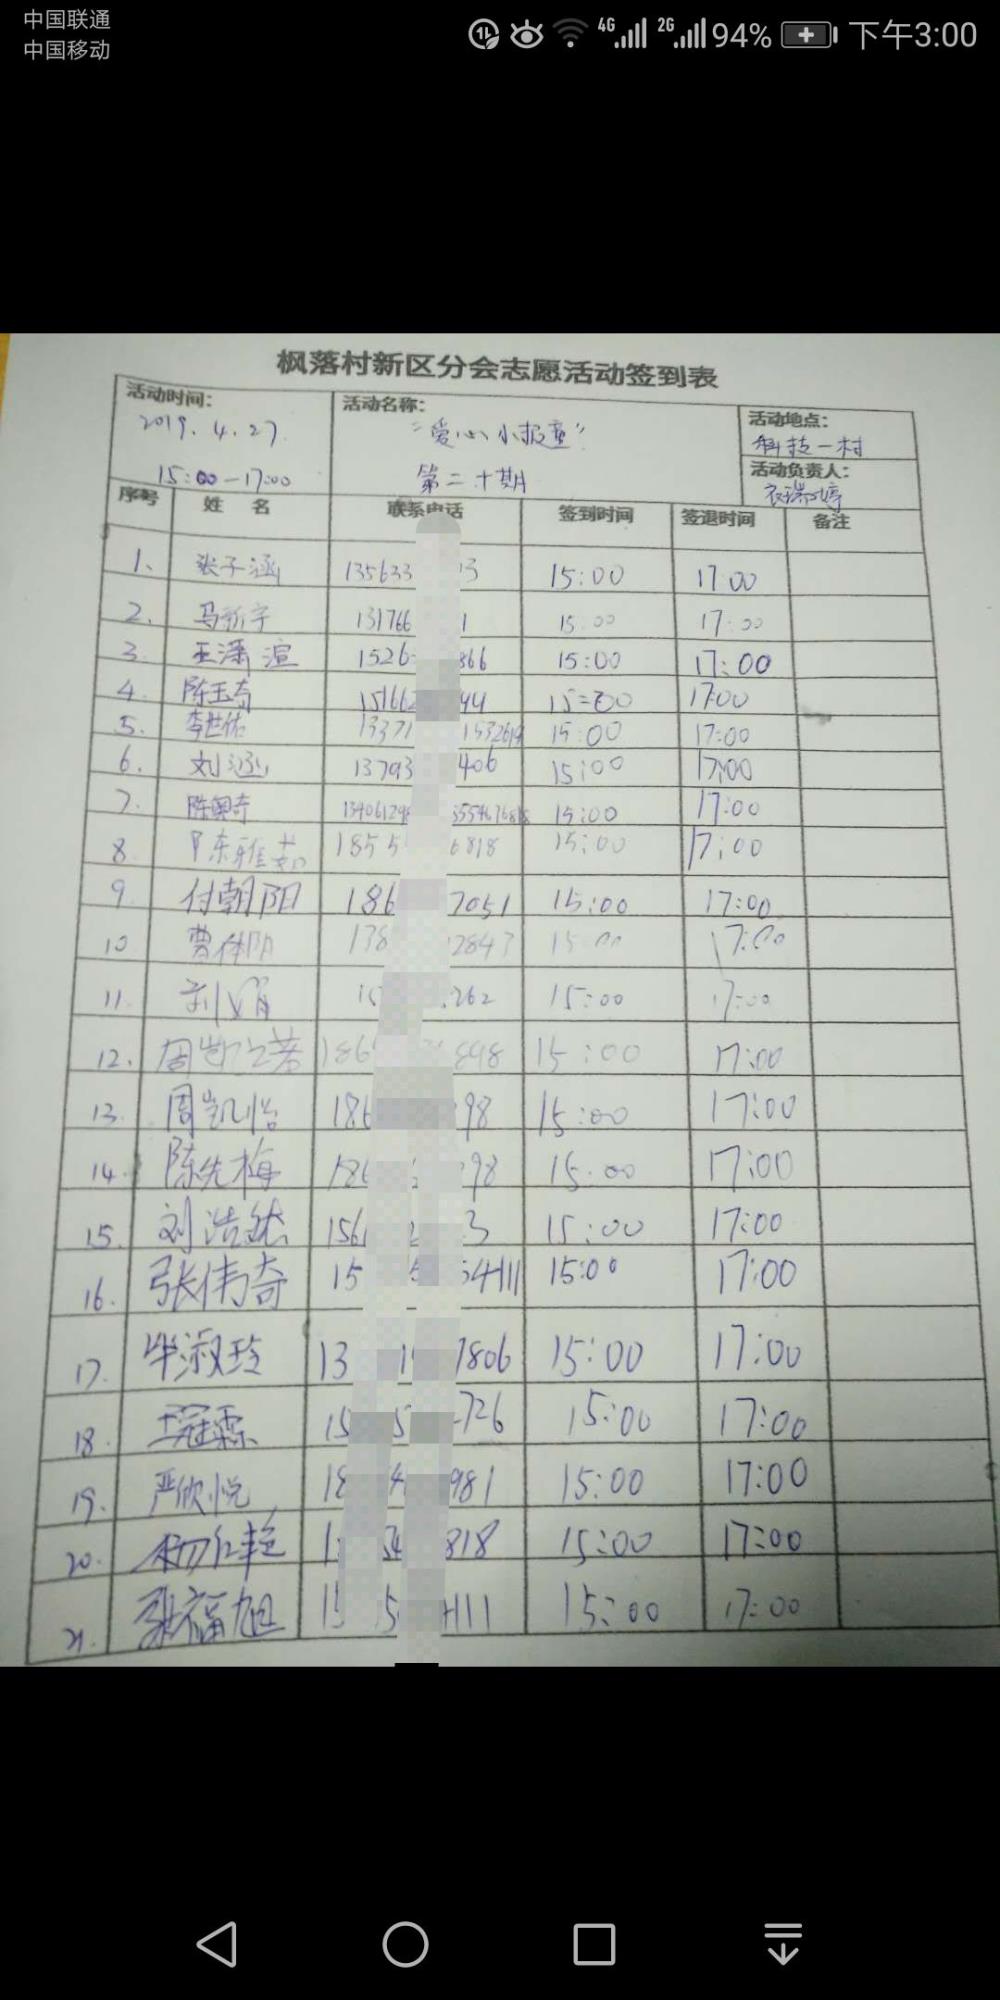 中国联通
中国移动
4G 2G 94% 下午3:00
枫落村新区分会志愿活动签到表
活动时间: 活动名称: 活动地点:
2019.4.27. "爱心小报童" 科技一村
15:00-17:00 第二十期 活动负责人:
衣瑞婷
序号 姓 名 联系电话 签到时间 签退时间 备注
1. 张子涵 135633 3 15:00 17:00
2. 马新宇 131766 1 15:00 17:00
3. 王潘渲 1526 866 15:00 17:00
4. 陈玉奇 15166 44 15:00 17:00
5. 李世佑 13371 15:00 17:00
6. 刘涵 13793 406 15:00 17:00
7. 陈奥奇 15:00 17:00
8 陈雅茹 1855 6818 15:00 17:00
9 付朝阳 186 7051 15:00 17:00
10 138 2843 15:00 17:00
11. 刘娟 15 262 15:00 17:00
12. 186 898 15:00 17:00
13. 周凯怡 186 98 15:00 17:00
14. 陈先梅 186 98 15:00 17:00
15. 刘浩然 156 3 15:00 17:00
16. 张伟奇 15 5 54111 15:00 17:00
17. 牟淑玲 13 1 7806 15:00 17:00
18. 王冠霖 15 5 726 15:00 17:00
19. 严欣悦 18 4 981 15:00 17:00
20. 1 54 818 15:00 17:00
21. 张福旭 15 5 111 15:00 17:00